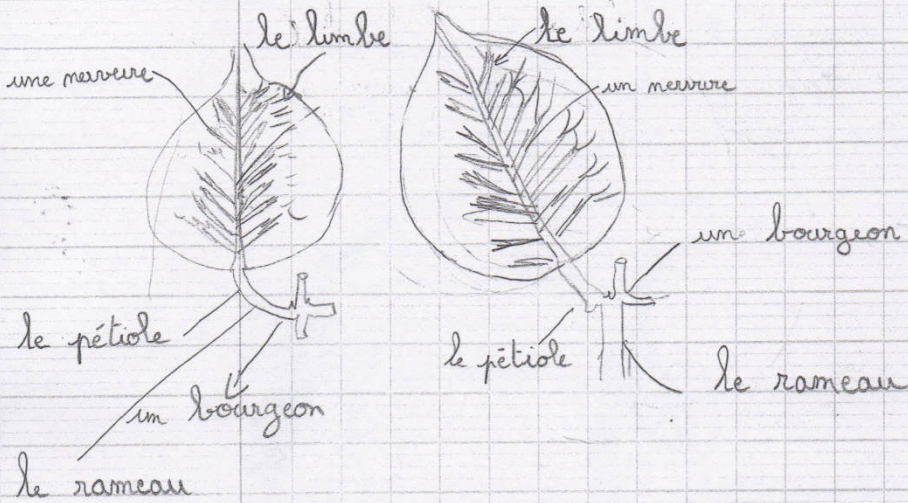 le limbe
une nervure
le pétiole
un bourgeon
le rameau
le limbe
un nervure
un bourgeon
le pétiole
le rameau